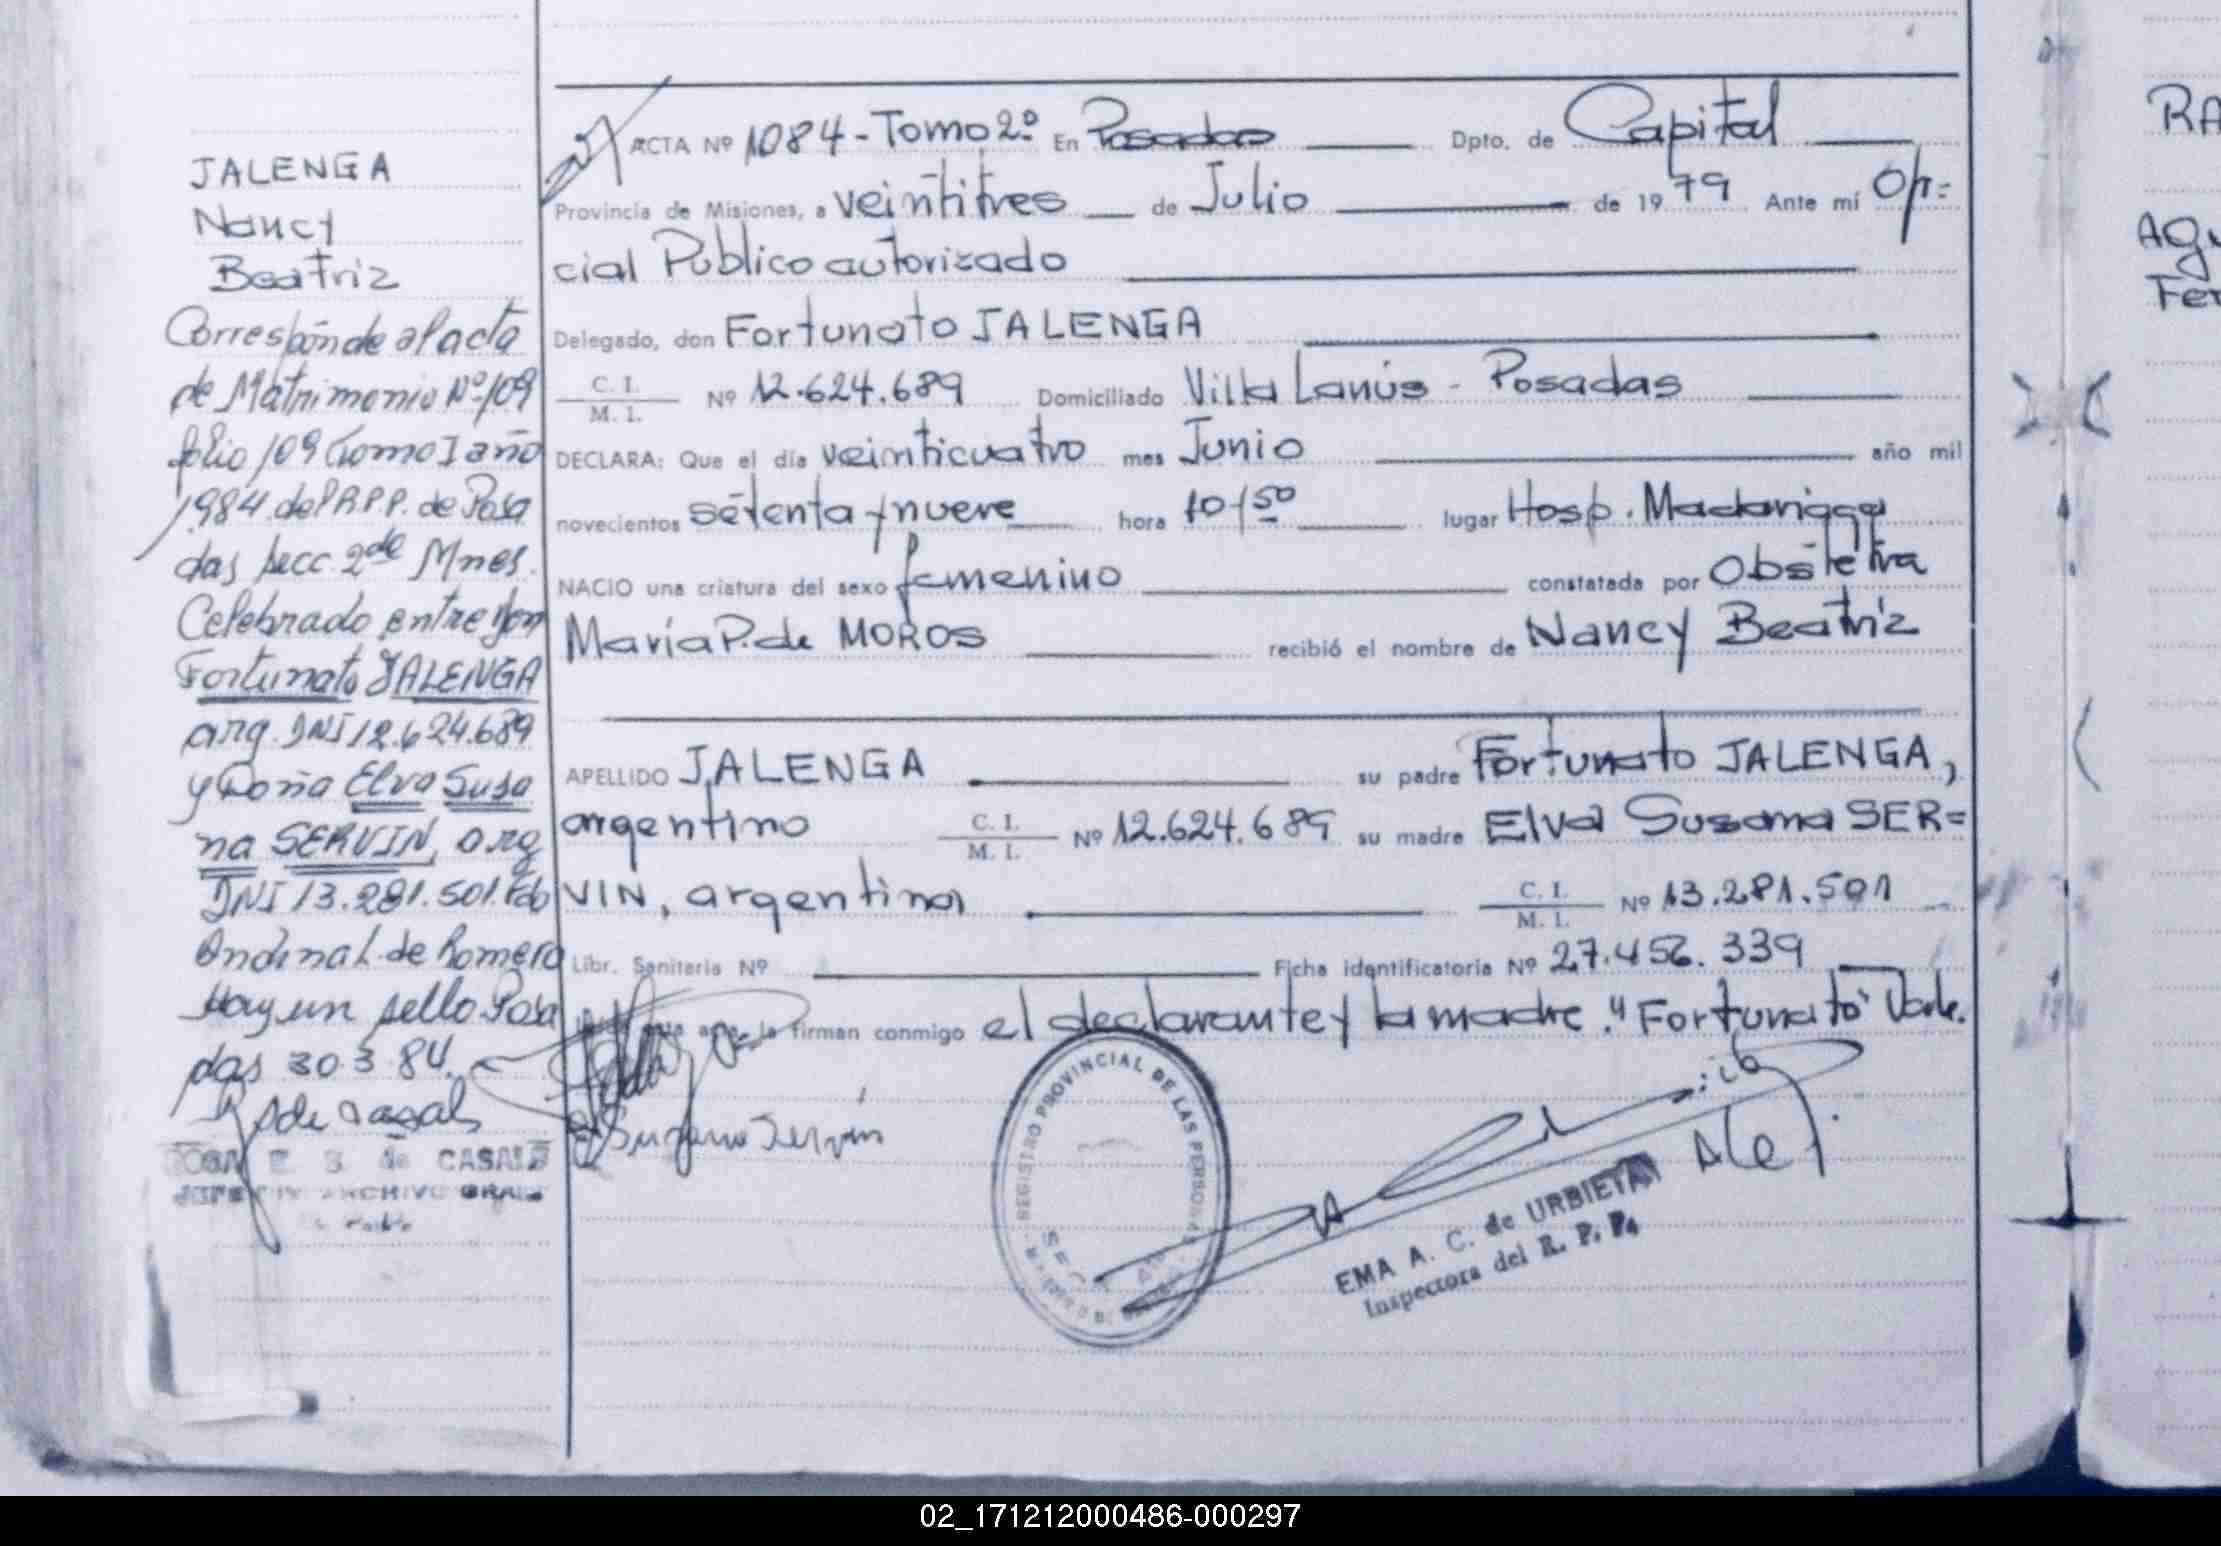 JALENGA
Nancy
Beatriz
Corresponde al acta
de Matrimonio Nº 109
folio 109 Tomo I año
1984 del R.P.P. de Posa
das secc. 2da Mnes.
Celebrado entre don
Fortunato JALENGA
arg. DNI 12.624.689
y Doña Elva Susa
na SERVIN, arg
DNI 13.281.501. Fdo
Ordinal. de Romero
Hay un sello. Posa
das 30.3.84.
de CASALS
JEFE ARCHIVO GRAL
ACTA Nº 1084 - Tomo 2º En Posadas Dpto. de Capital
Provincia de Misiones, a veintitres de Julio de 1979 Ante mí Ofi=
cial Público autorizado
Delegado, don Fortunato JALENGA
C. I.
M. I.
Nº 12.624.689 Domiciliado Villa Lanús - Posadas
DECLARA: Que el día veinticuatro mes Junio año mil
novecientos setenta y nueve hora 10/50 lugar Hosp. Madariaga
NACIO una criatura del sexo femenino constatada por Obstetra
María P. de MOROS recibió el nombre de Nancy Beatriz
APELLIDO JALENGA su padre Fortunato JALENGA,
argentino C. I. M. I. Nº 12.624.689 su madre Elva Susana SER=
VIN, argentina C. I. M. I. Nº 13.281.501
Libr. Sanitaria Nº Ficha identificatoria Nº 27.456.339
acta, la firman conmigo el declarante y la madre. "Fortunato" Vale.
Susana Servin
REGISTRO PROVINCIAL DE LAS PERSONAS
EMA A. C. de URBIETA
Inspectora del R. P. P.
RA
AGU
Fer
02_171212000486-000297